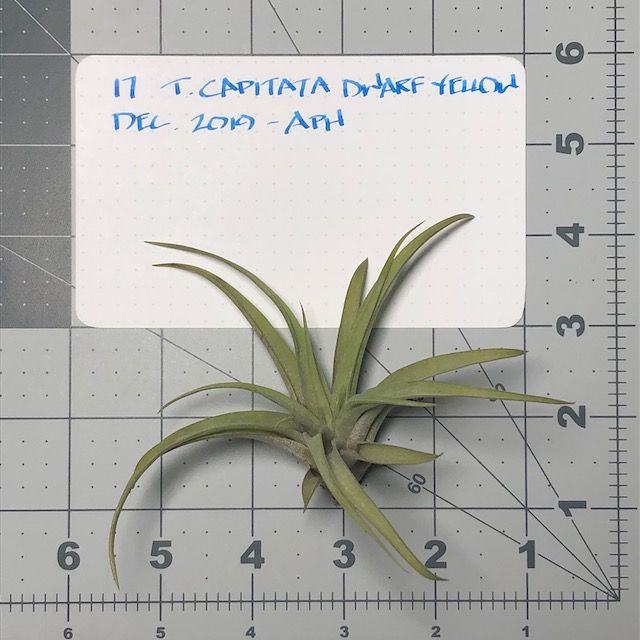 17 T. CAPITATA DWARF YELLOW
DEC. 2019 - APH
6
5
4
3
2
1
60
6 5 4 3 2 1
6 5 4 3 2 1